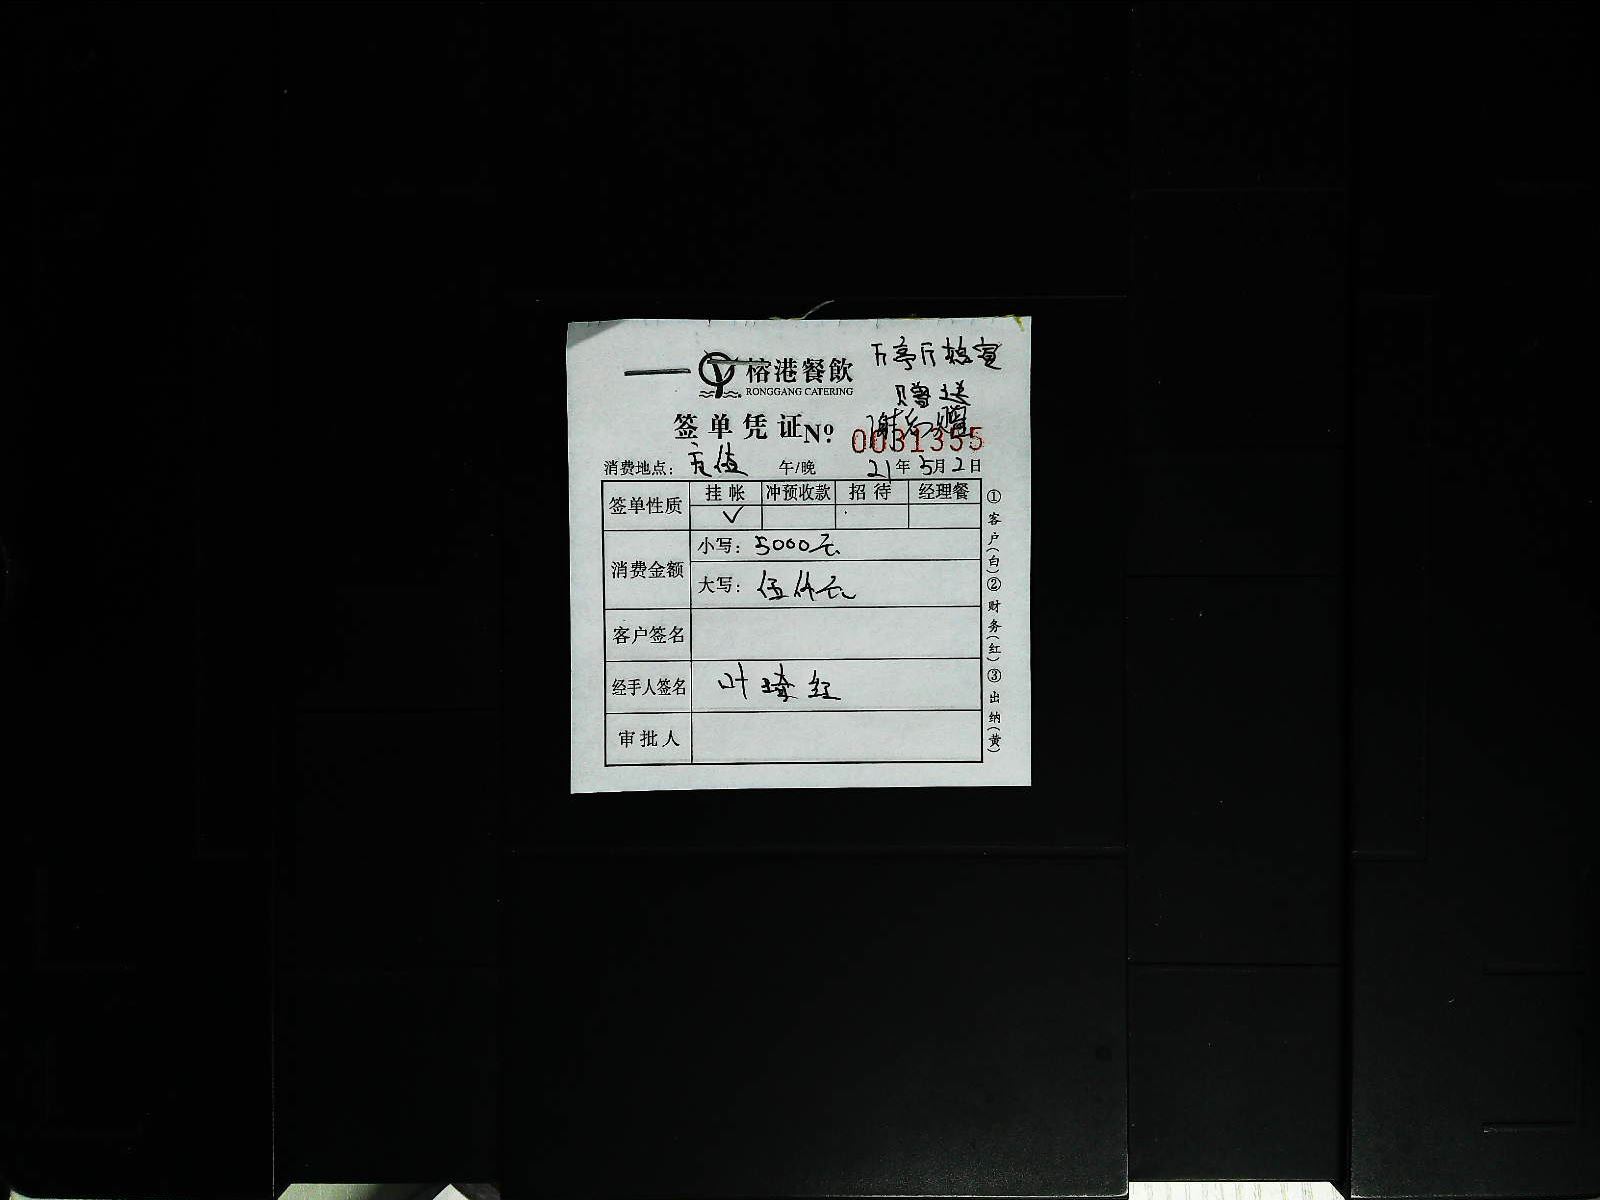 榕港餐飲
RONGGANG CATERING
赠送
签单凭证 Nº 0031355
消费地点：充值 午/晚 21年5月2日
签单性质 挂帐 冲预收款 招待 经理餐
✓
消费金额 小写：5000元
大写：伍仟元
客户签名
经手人签名 叶琦红
审批人
①客户(白)②财务(红)③出纳(黄)